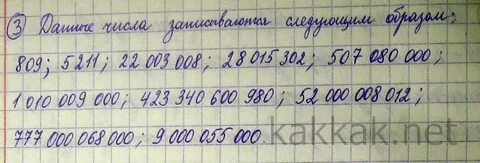 ③ Данные числа записываются следующим образом:
809; 5211; 22 003 008; 28 015 302; 507 080 000;
1 010 009 000; 423 340 600 980; 52 000 008 012;
777 000 068 000; 9 000 055 000.
kakkak.net